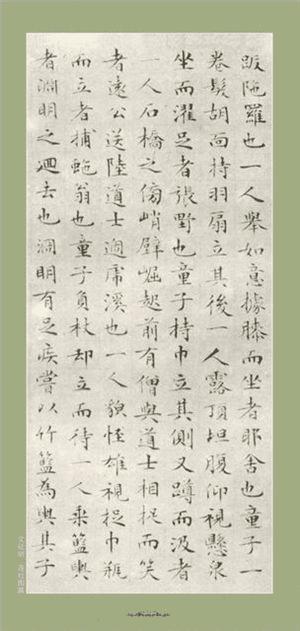 跋陁羅也一人舉如意據膝而坐者耶舍也童子一
卷髮胡面持羽扇立其後一人露頂坦腹仰視懸泉
坐而濯足者張野也童子持巾立其側又蹲而汲者
一人石橋之傍峭壁崛起前有僧與道士相捉而笑
者遠公送陸道士過虎溪也一人貌恠雄視捉巾瓶
而立者捕虵翁也童子負杖却立而待一人乘籃輿
者淵明之廻去也淵明有足疾嘗以竹籃為輿其子
文徵明 蓮社圖記